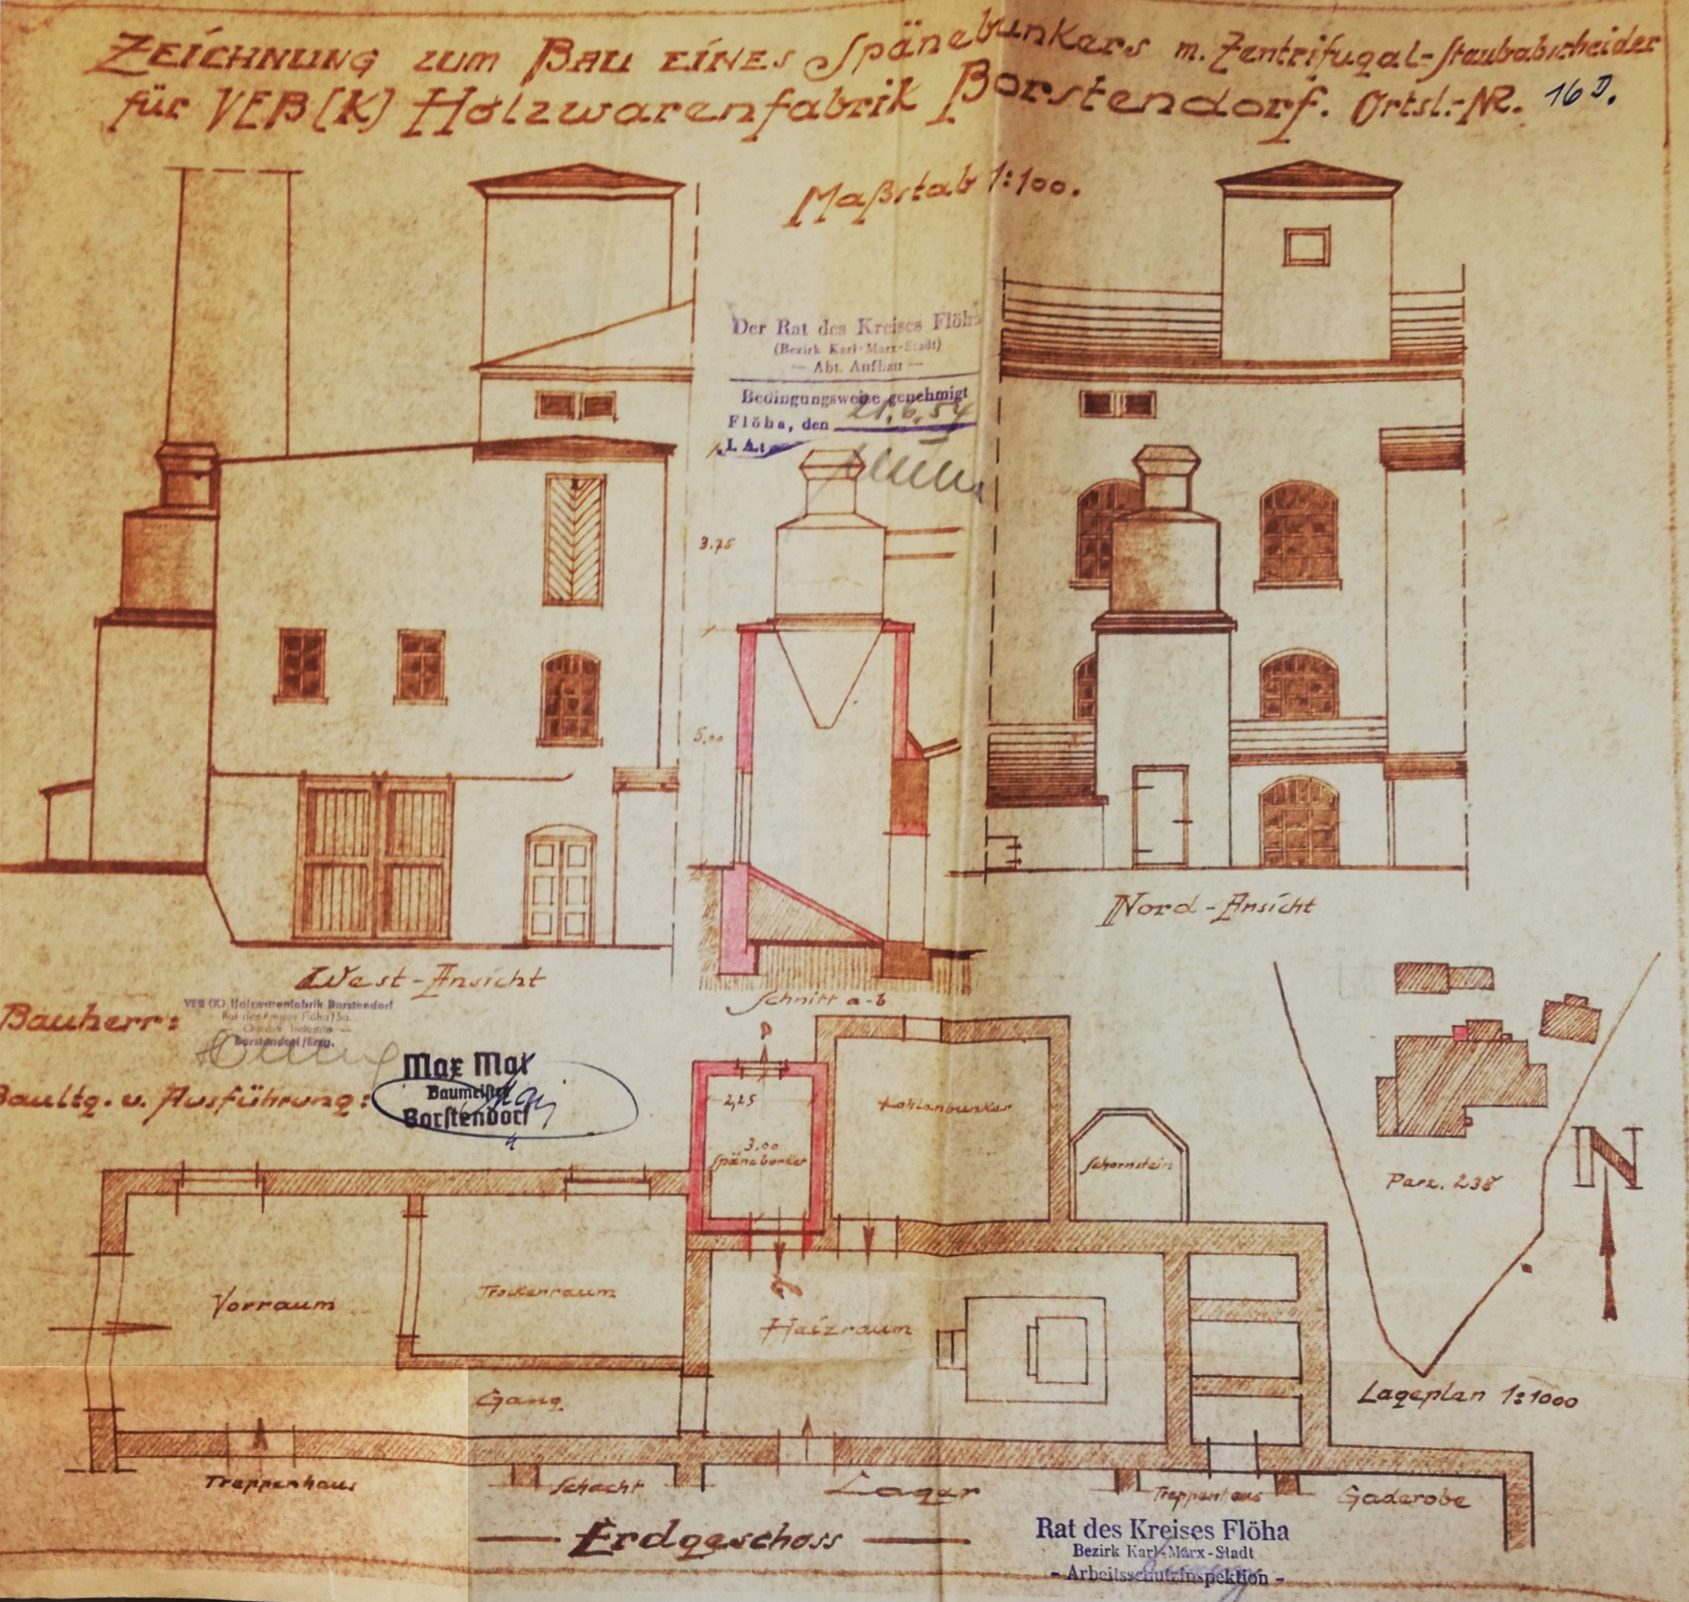 Zeichnung zum Bau eines Spänebunkers m. Zentrifugal-Staubabscheider
für VEB (K) Holzwarenfabrik Borstendorf. Ortsl.-Nr. 16 D.
Maßstab 1:100.
Der Rat des Kreises Flöha
(Bezirk Karl-Marx-Stadt)
— Abt. Aufbau —
Bedingungsweise genehmigt
Flöha, den 21.6.54
I. A.:
3.75
5,00
Nord-Ansicht
West-Ansicht
Schnitt a-b
Bauherr:
VEB (K) Holzwarenfabrik Borstendorf
Rat des Kreises Flöha/Sa.
— Örtliche Industrie —
Borstendorf/Erzg.
Baultg. u. Ausführung:
Max May
Baumeister
Borstendorf
2,25
3.00
Spänebunker
Kohlenbunker
Schornstein
Parz. 238
N
Vorraum
Trockenraum
Heizraum
Gang.
Lageplan 1:1000
Treppenhaus
Schacht
Lager
Treppenhaus
Gaderobe
Erdgeschoss
Rat des Kreises Flöha
Bezirk Karl-Marx-Stadt
- Arbeitsschutzinspektion -